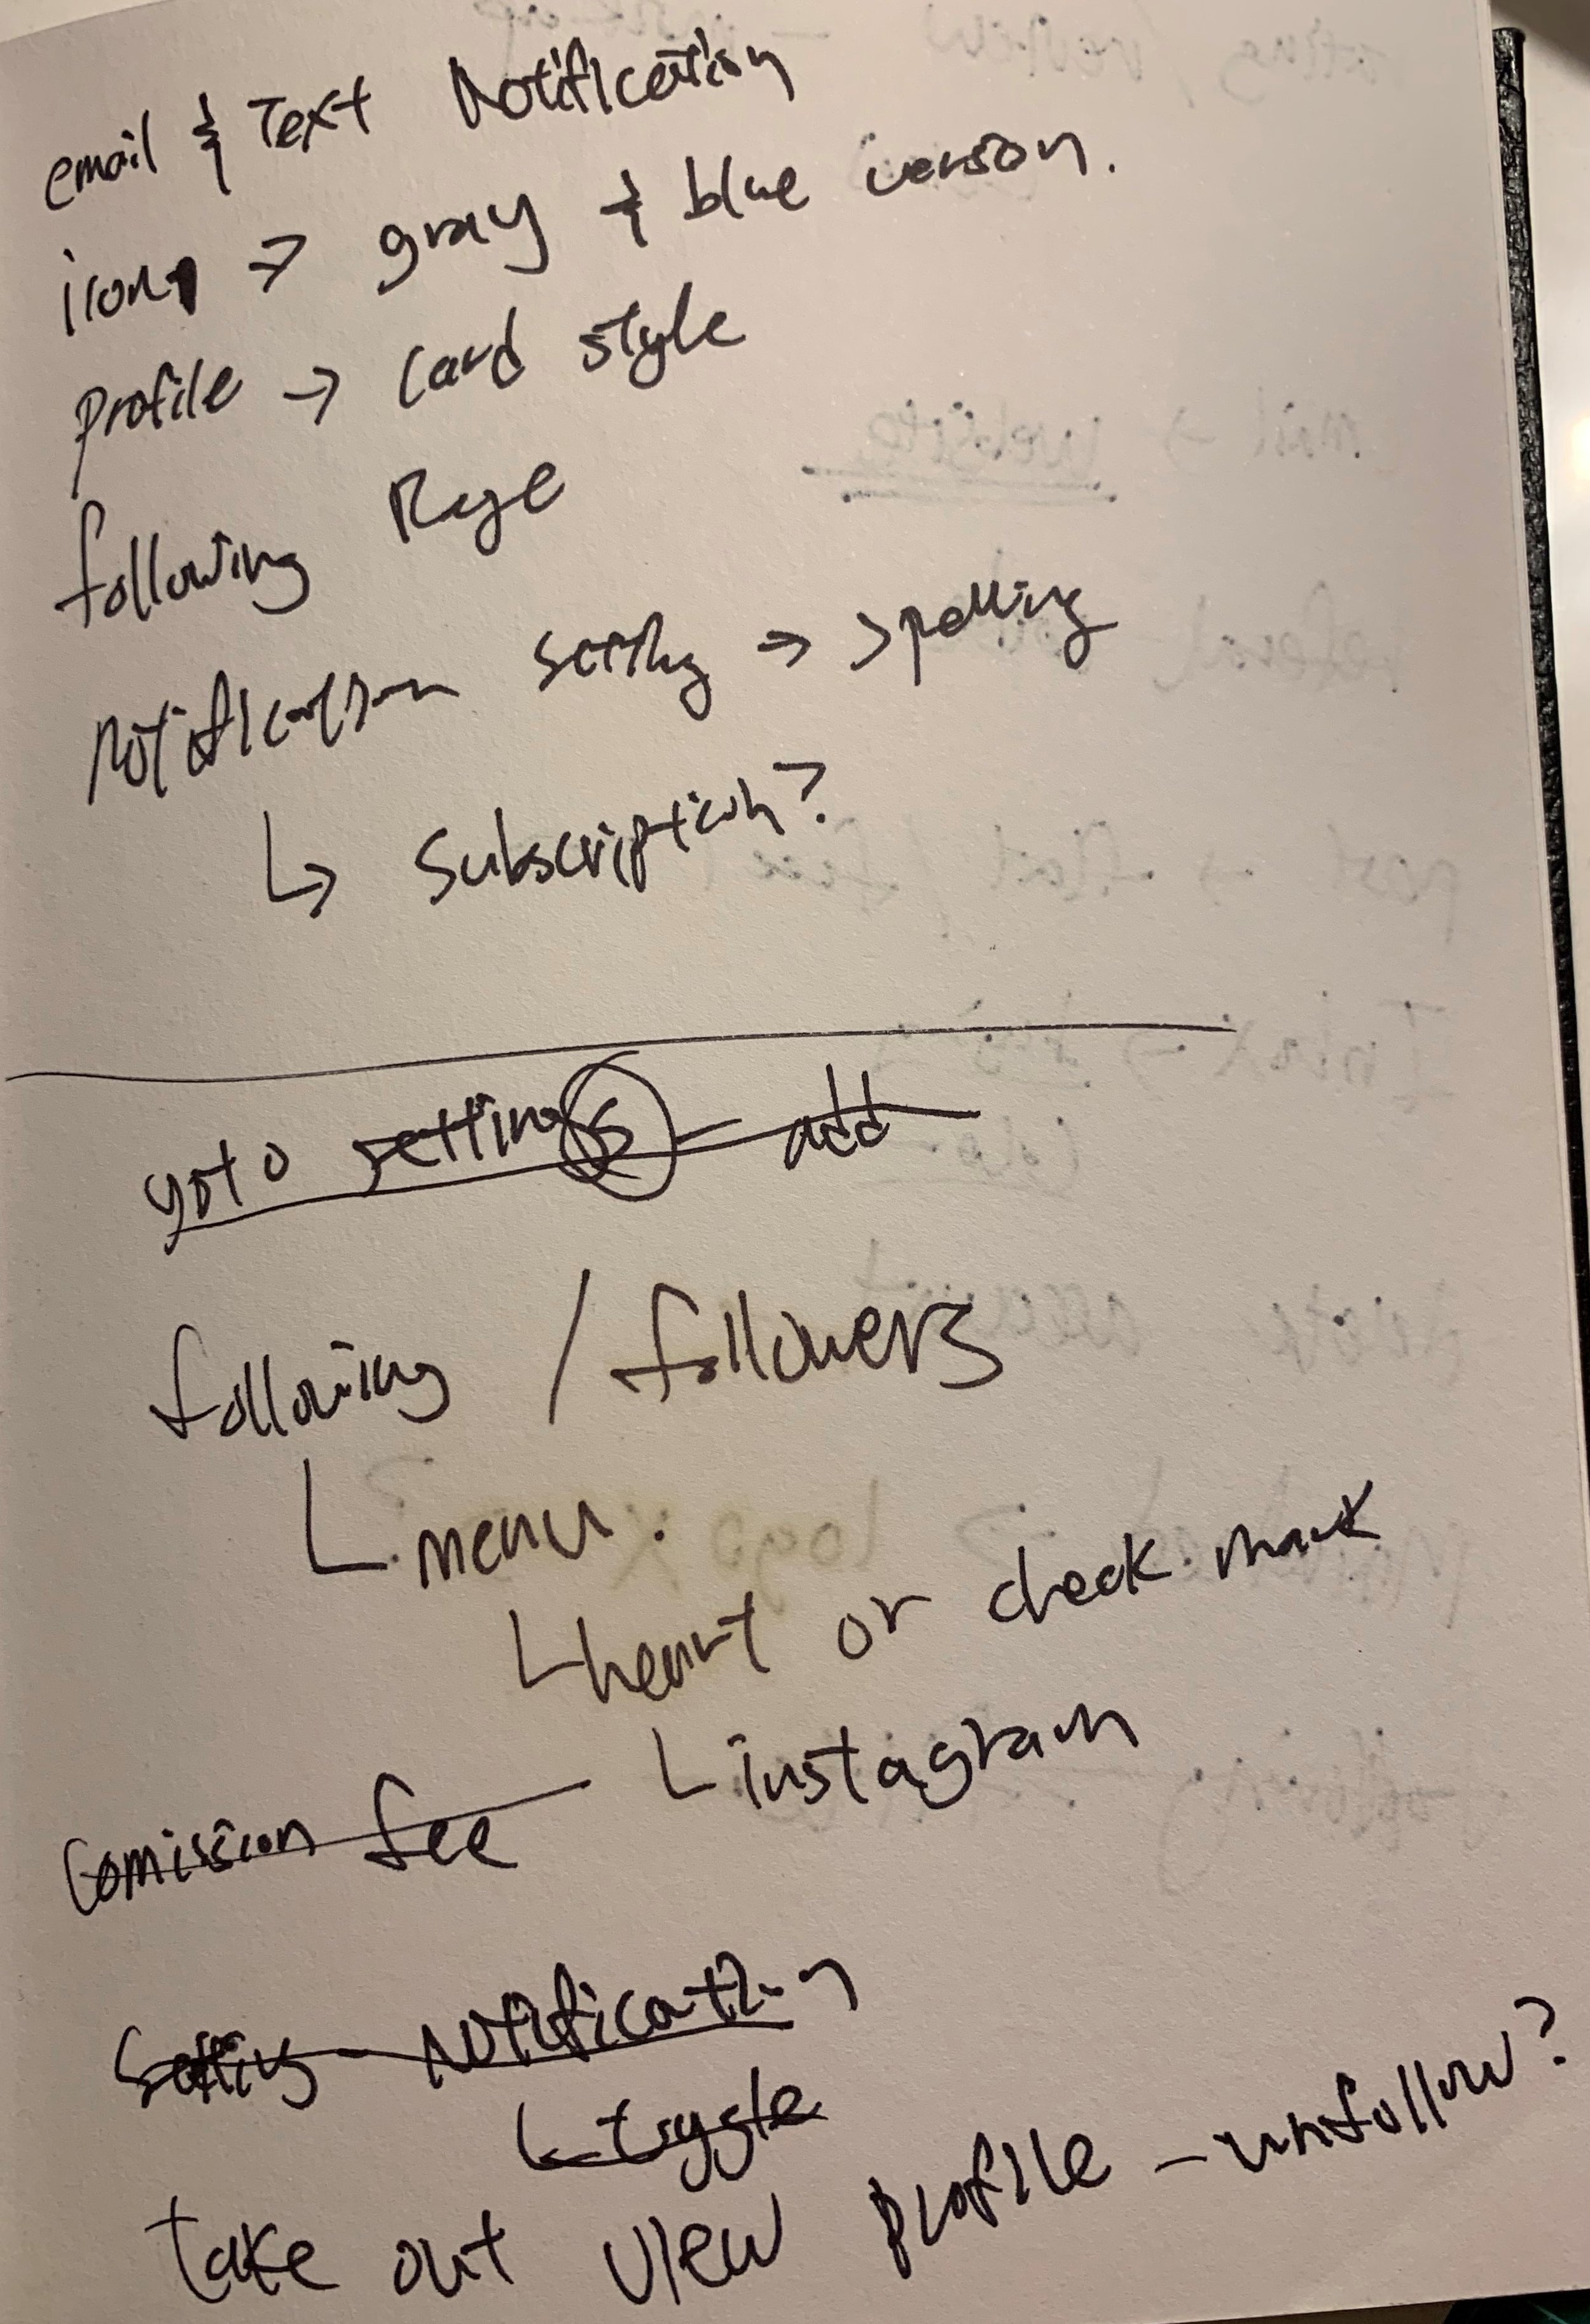 email & Text Notification
icon → gray & blue version.
profile → card style
following Page
Notification setting → spelling
↳ Subscription?
goto settings - add
following / followers
∟ menu.
∟ heart or check mark
∟ instagram
Comission fee
Setting - Notification
∟ toggle
take out view profile - unfollow?